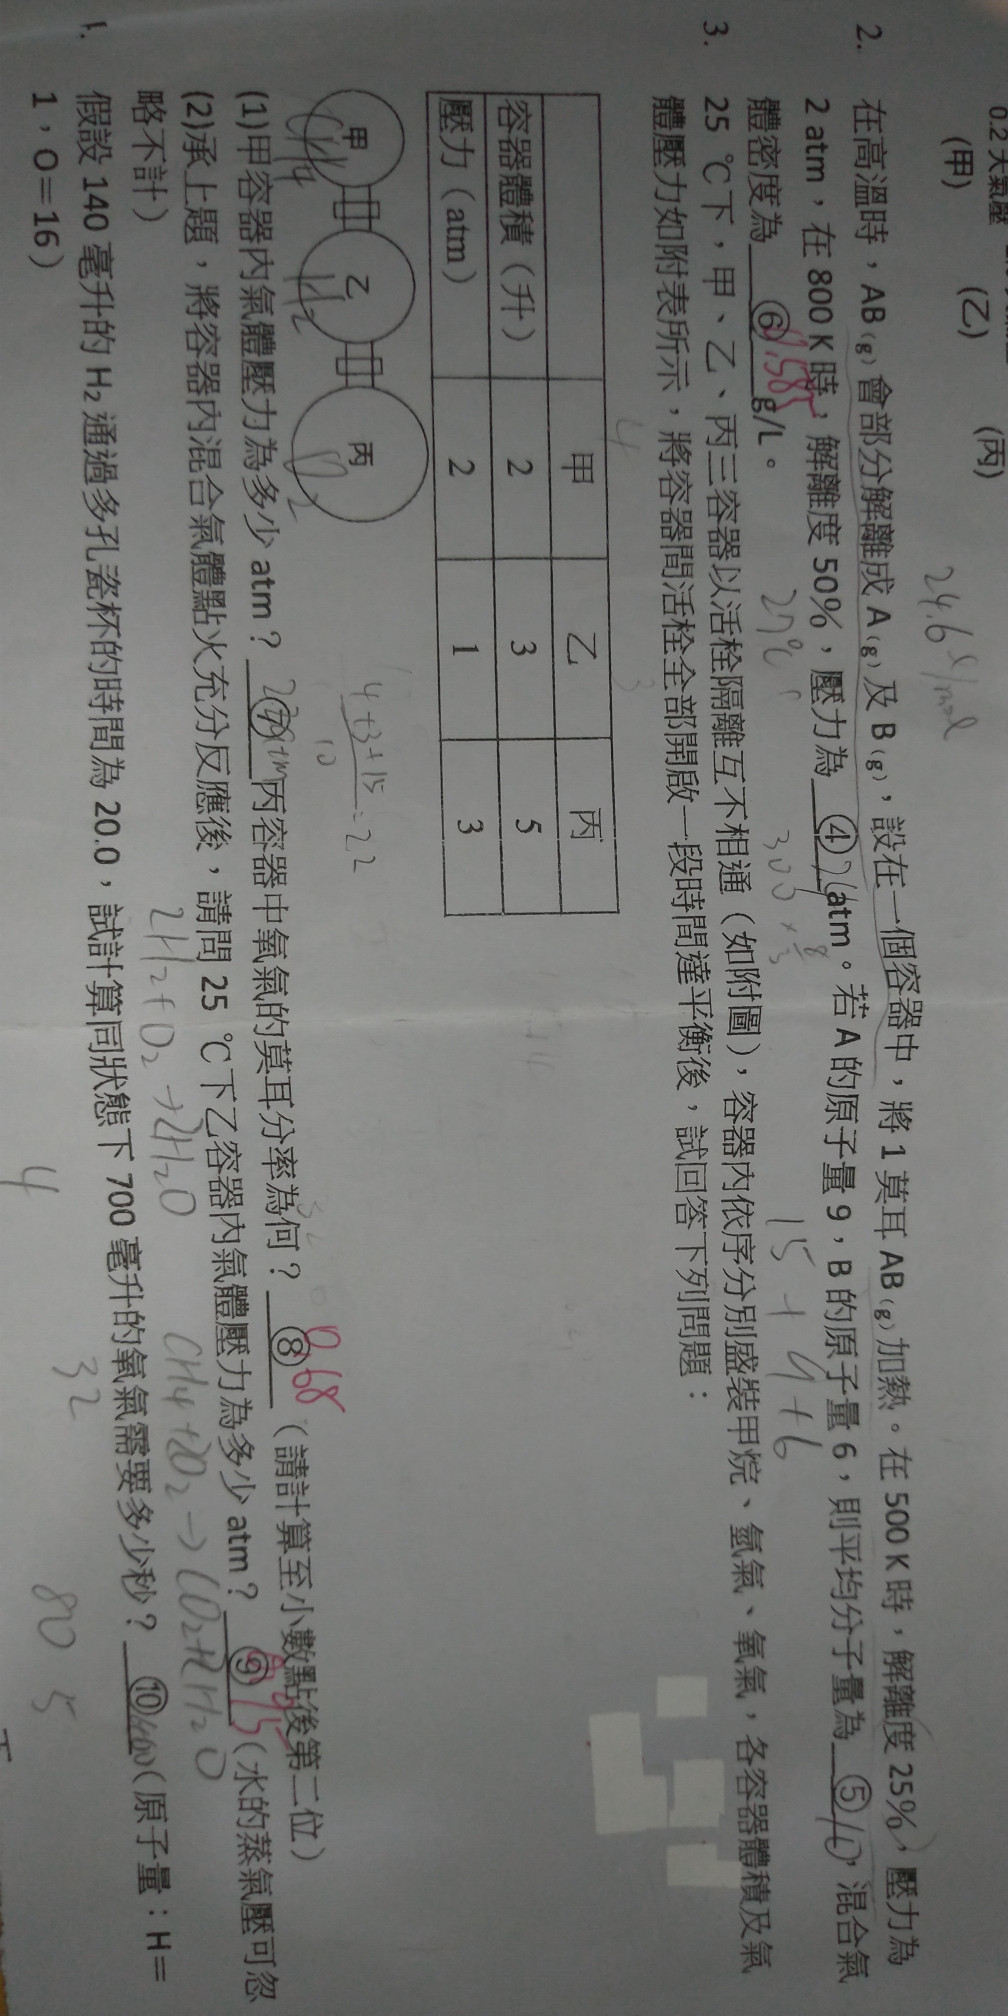 0.2大氣壓
(甲) (乙) (丙)
24.6 l/mol
2. 在高溫時，AB(g)會部分解離成 A(g)及 B(g)，設在一個容器中，將 1 莫耳 AB(g)加熱。在 500 K 時，解離度 25%，壓力為
2 atm，在 800 K 時，解離度 50%，壓力為 ④ atm。若 A 的原子量 9，B 的原子量 6，則平均分子量為 ⑤10，混合氣
體密度為 ⑥ g/L。
27℃
15+9+6
3. 25 ℃下，甲、乙、丙三容器以活栓隔離互不相通（如附圖），容器內依序分別盛裝甲烷、氫氣、氧氣，各容器體積及氣
體壓力如附表所示，將容器間活栓全部開啟一段時間達平衡後，試回答下列問題：
甲 乙 丙
容器體積（升） 2 3 5
壓力（atm） 2 1 3
4+3+15
10
=2.2
甲 乙 丙
CH4 H2 O2
(1)甲容器內氣體壓力為多少 atm？ ⑦ 丙容器中氧氣的莫耳分率為何？ ⑧ 0.68 （請計算至小數點後第二位）
(2)承上題，將容器內混合氣體點火充分反應後，請問 25 ℃下乙容器內氣體壓力為多少 atm？ ⑨ （水的蒸氣壓可忽
略不計）
2H2+O2→2H2O CH4+2O2→CO2+2H2O
1. 假設 140 毫升的 H2 通過多孔瓷杯的時間為 20.0，試計算同狀態下 700 毫升的氧氣需要多少秒？ ⑩400（原子量：H＝
1，O＝16）
32
4
80 5